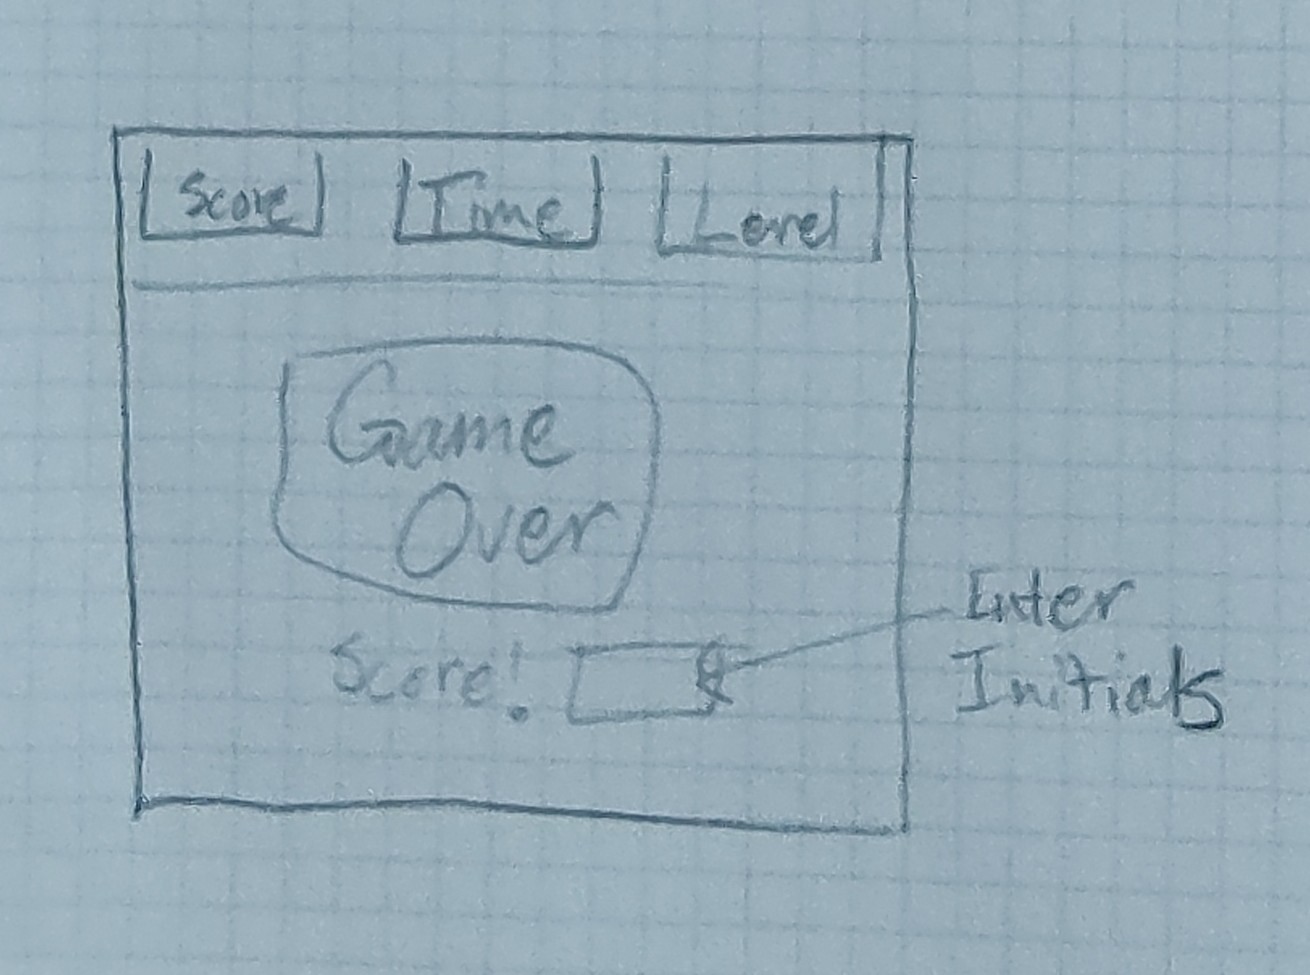 Score Time Level
Game
Over
Score!
Enter
Initials